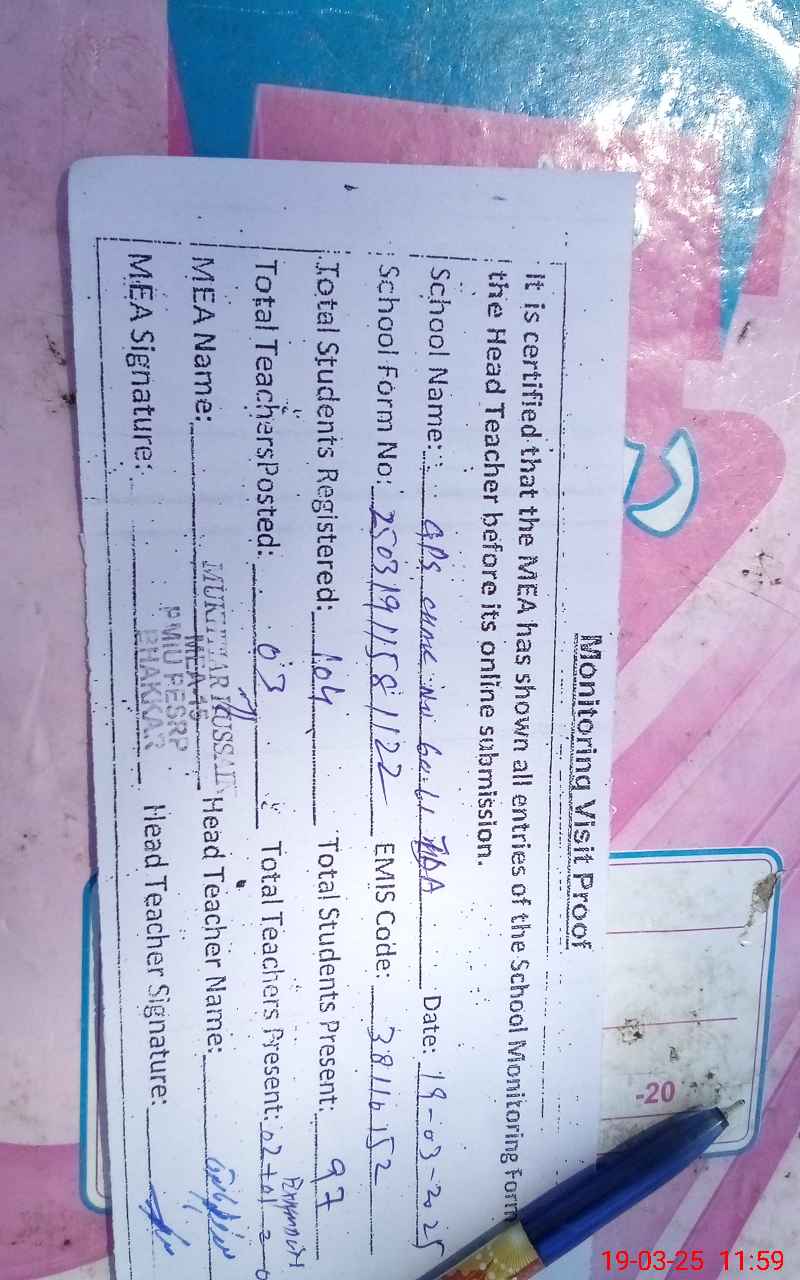 Monitoring Visit Proof
It is certified that the MEA has shown all entries of the School Monitoring Form
the Head Teacher before its online submission.
School Name: GPS Date: 19-03-2025
School Form No: 25031911581122 EMIS Code: 38110152
Total Students Registered: 104 Total Students Present: 97
Total Teachers Posted: 03 Total Teachers Present: 02+01
MEA Name: MUKHTAR HUSSAIN Head Teacher Name:
MEA Signature: Head Teacher Signature:
MEA-15
PMIU PESRP
BHAKKAR
-20
19-03-25 11:59